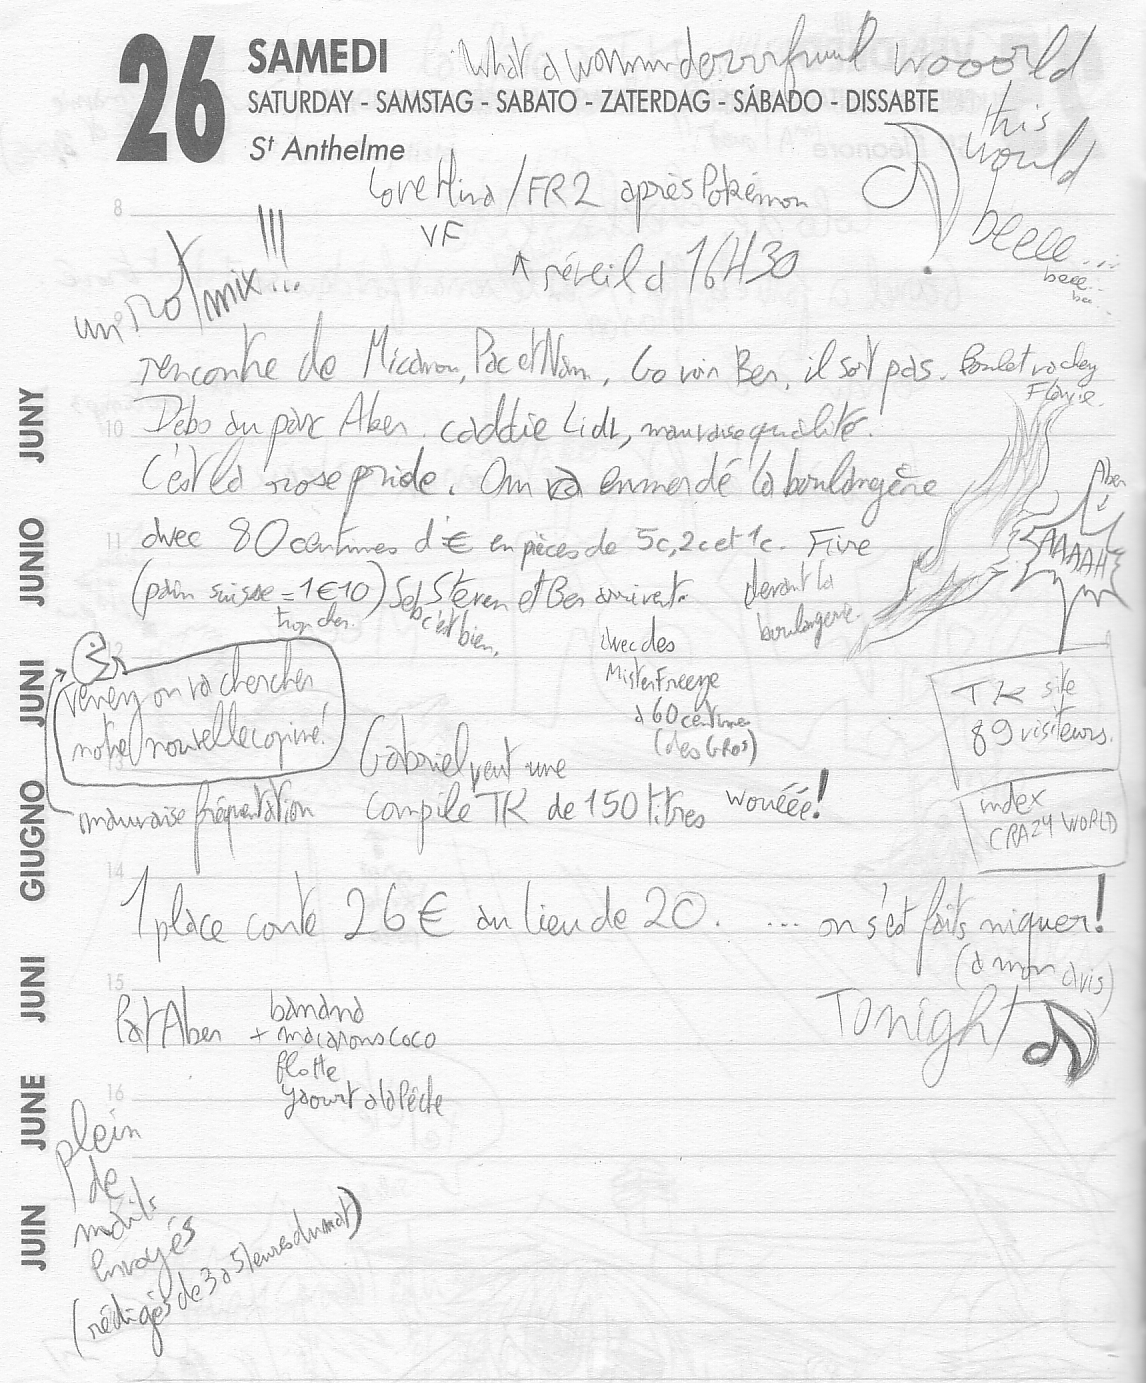 26
SAMEDI
What a wonnnnderrrrfuuul wooorld
SATURDAY - SAMSTAG - SABATO - ZATERDAG - SÁBADO - DISSABTE
St Anthelme
this
would
beeee...
beee..
be..
Love Hina / FR2 après Pokémon
VF
↑ réveil à 16H30
8
un not mix!!!
!!!
rencontre de Micaron, Pac et Nam, Go voir Ben, il sort pas.
Flavie.
10
Debo au parc Aber. caddie Lidl, mauvaise qualité.
C'est la rose pride. On va enmerdé la boulangère
Aber
11
avec 80 centimes d'€ en pièces de 5c, 2c et 1c. Fire
AAAAH
(pain suisse = 1€10) Seb Steven et Ben arrivent.
trop cher.
c'est bien.
devant la
boulangerie.
12
avec des
Mister Freeze
à 60 centimes
(des GROS)
venez on va chercher
notre nouvelle copine!
TK site
89 visiteurs.
13
Gabriel veut une
compile TK de 150 titres
wouééé!
mauvaise fréquentation
index
CRAZY WORLD
14
1 place coute 26€ au lieu de 20. ... on s'est faits niquer!
(à mon avis)
15
Par Aber
banana
+ macarons coco
flotte
yaourt à la pêche
Tonight
16
plein
de
mails
envoyés
(rédigés de 3 à 5 heures du mat)
JUIN JUNE JUNI GIUGNO JUNI JUNIO JUNY